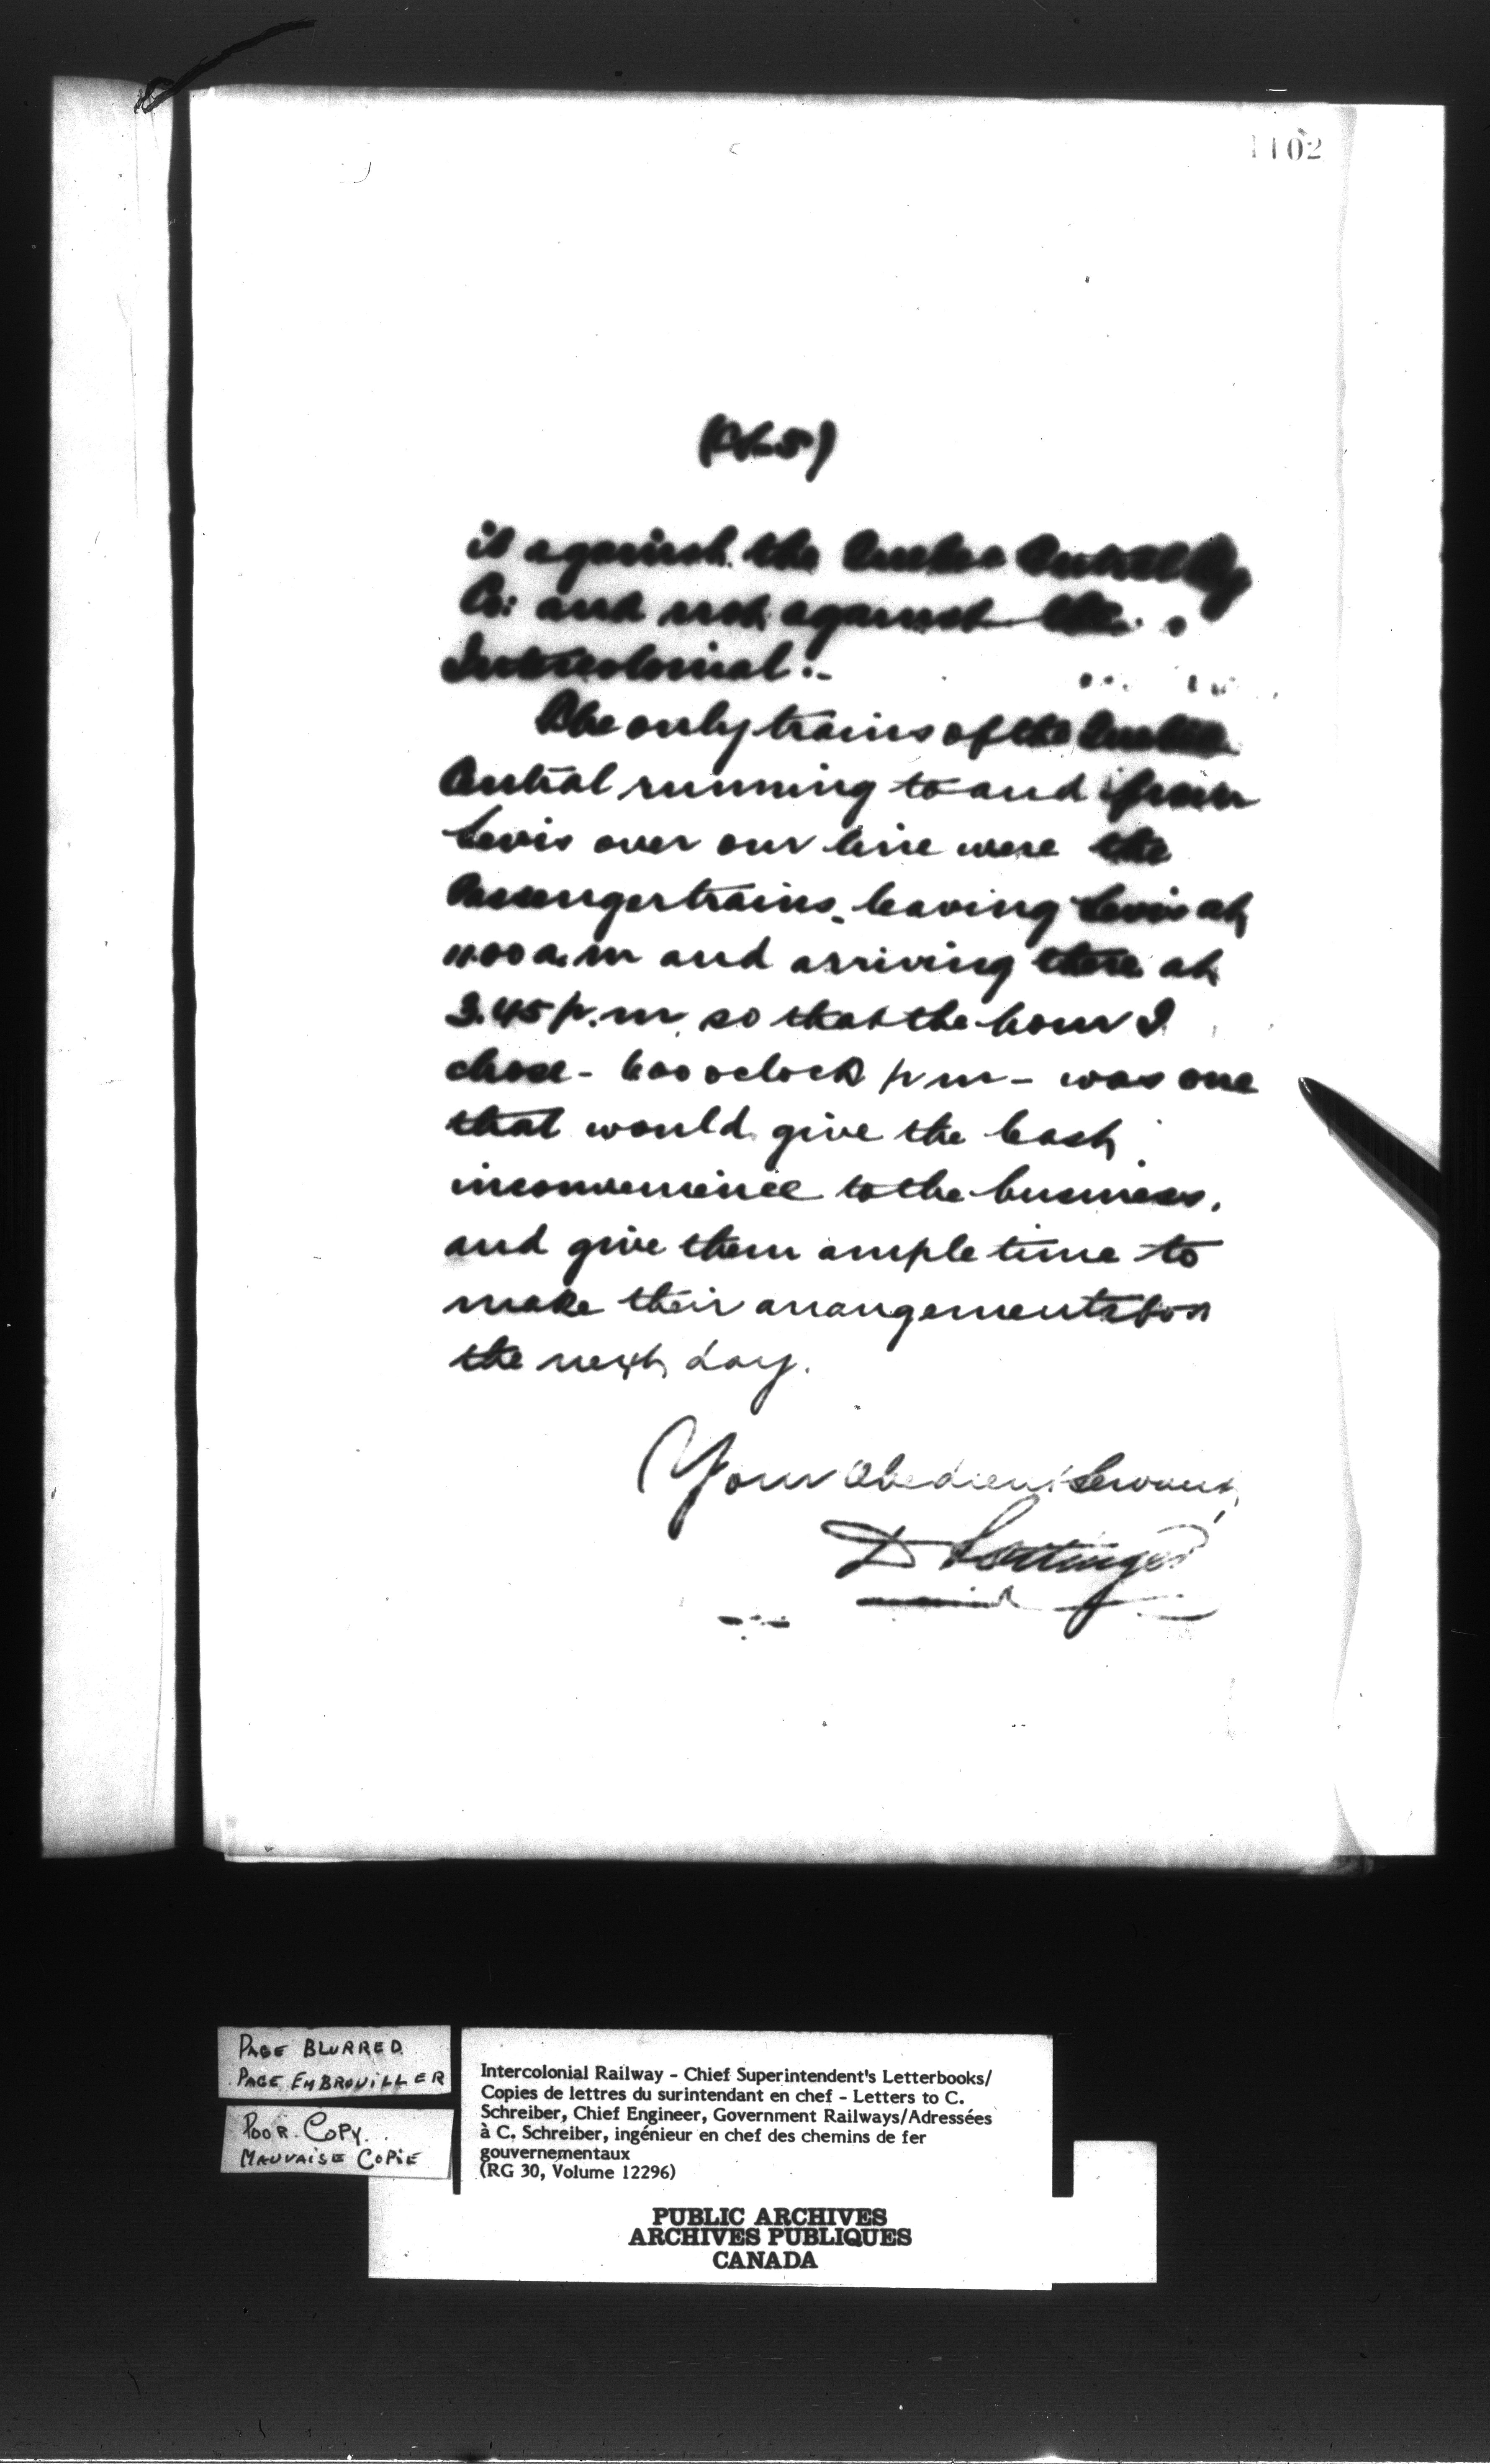 1102
it against the Quebec Central Ry
Co: and not against the
Intercolonial:-
The only trains of the Quebec
Central running to and from
Levis over our line were the
Passenger trains leaving Levis at
11.00 a.m and arriving there at
3.45 p.m, so that the hour I
chose - 6.00 oclock p m - was one
that would give the least
inconvenience to the business,
and give them ample time to
make their arrangements for
the next day.
Your Obedient Servant,
D Pottinger
PAGE BLURRED
PAGE EMBROUILLER
POOR COPY
MAUVAISE COPIE
Intercolonial Railway - Chief Superintendent's Letterbooks/
Copies de lettres du surintendant en chef - Letters to C.
Schreiber, Chief Engineer, Government Railways/Adressées
à C. Schreiber, ingénieur en chef des chemins de fer
gouvernementaux
(RG 30, Volume 12296)
PUBLIC ARCHIVES
ARCHIVES PUBLIQUES
CANADA